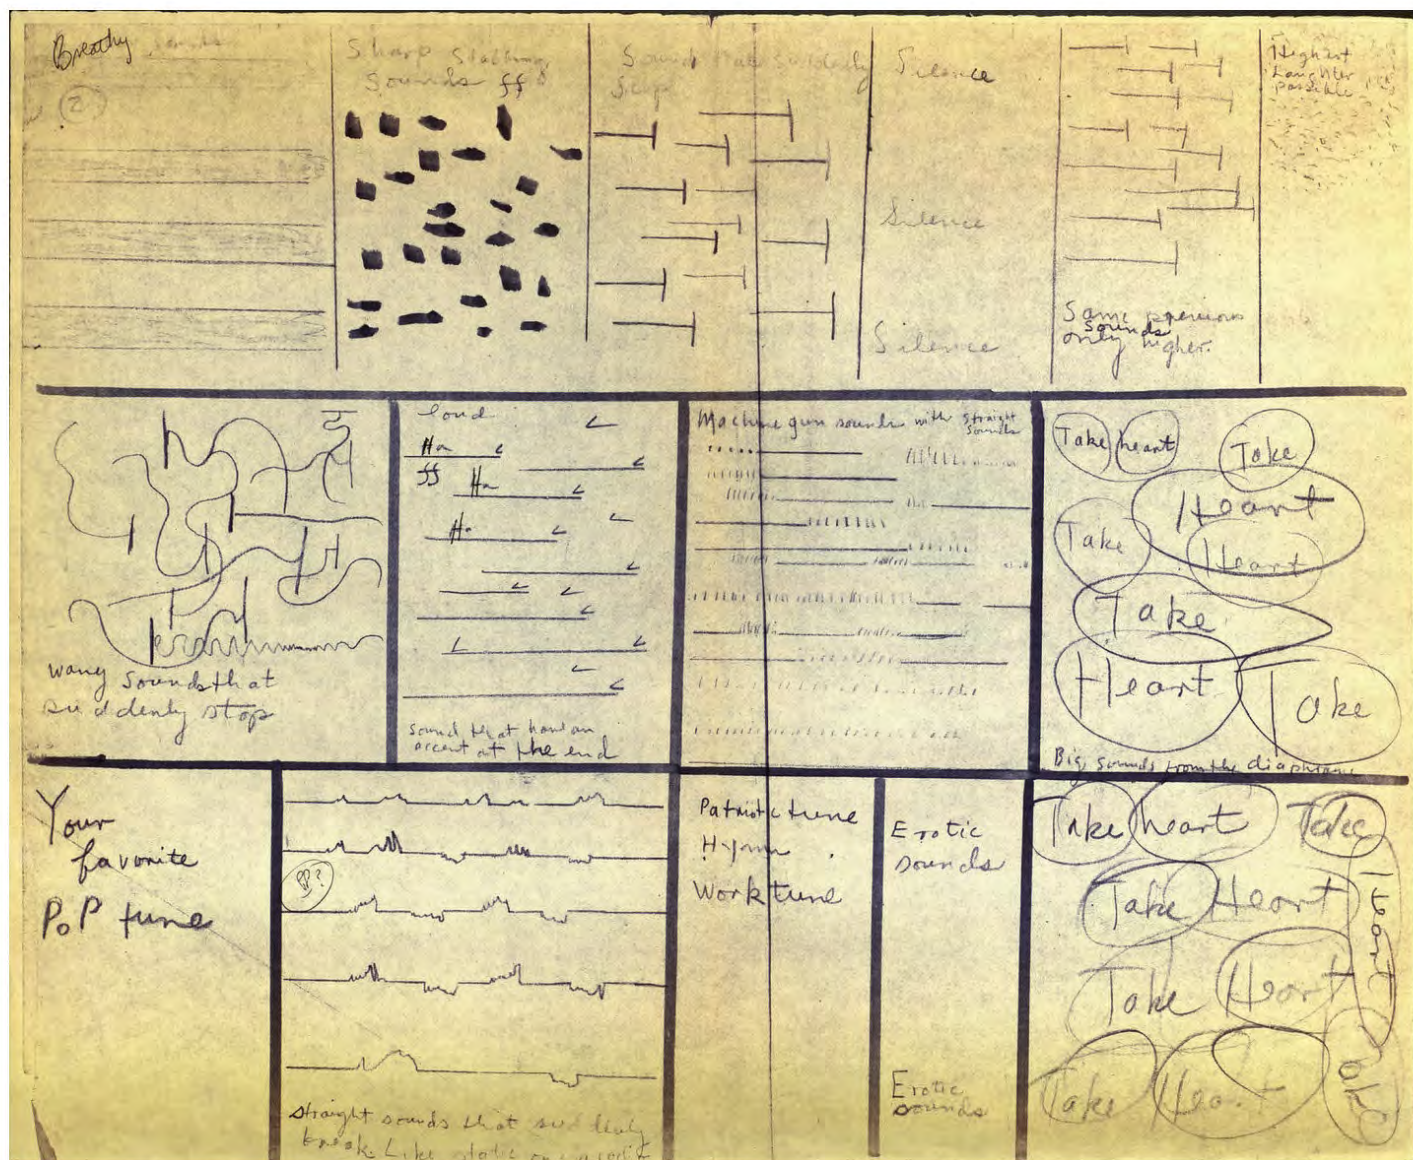 Breathy sounds
2
Sharp Stabbing
Sounds ff
Sound that suddenly
Stop
Silence
Silence
Silence
Same previous
sounds
only higher.
Highest
Laughter
possible
wavy sounds that
suddenly stop
loud
Ha
ff Ha
Ha
sound that have an
accent at the end
Machine gun sounds with straight
sounds
Take heart Take
Heart
Take Heart
Take
Heart Take
Big sounds from the
Your
favorite
PoP tune
PP?
straight sounds that suddenly
break. Like static on a
Patriotic tune
Hymn
Work tune
Erotic
sounds
Erotic
sounds
Take heart Take
Heart
Take Heart
Take Heart
Take Heart
Take